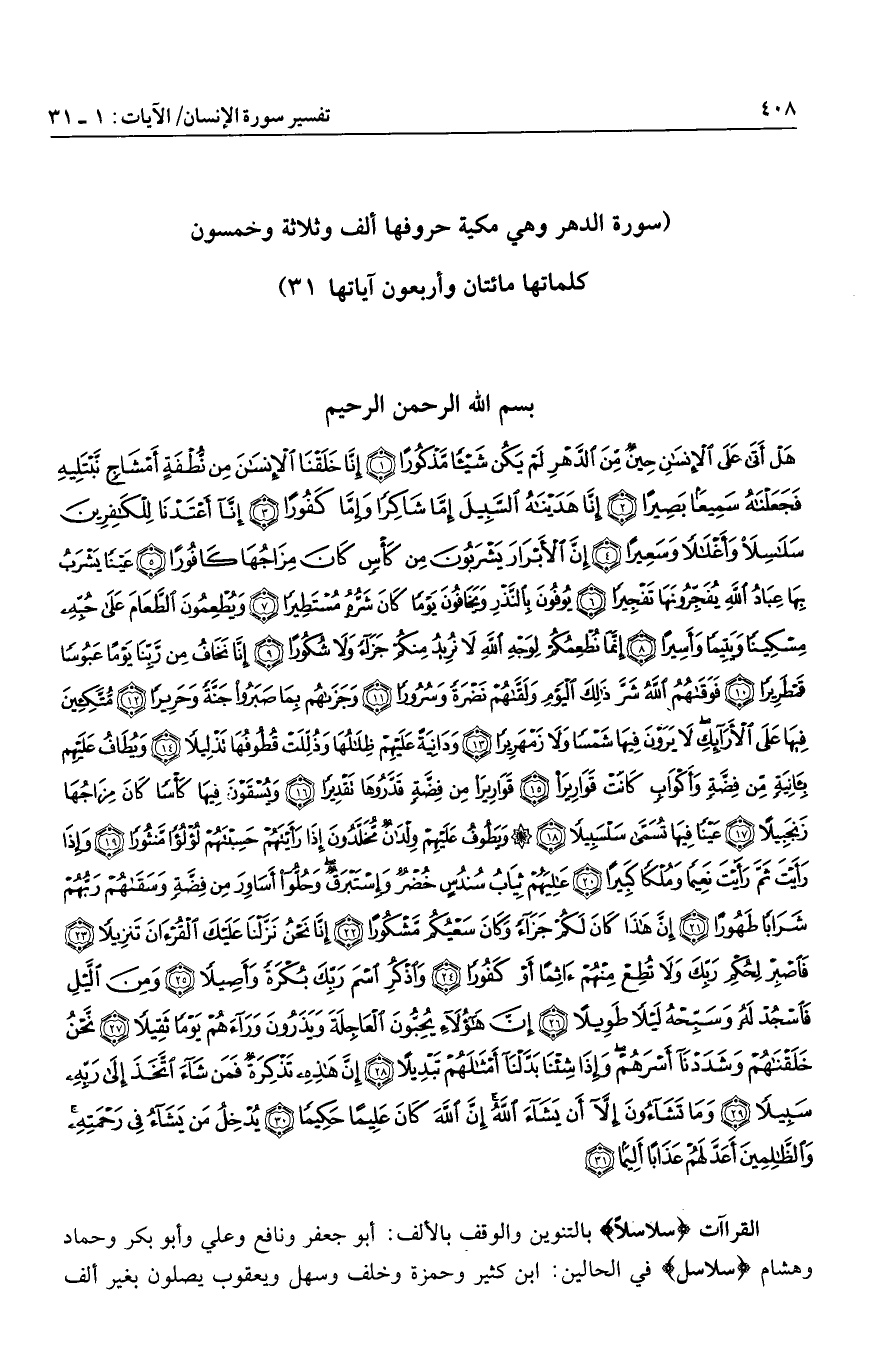 ٤٠٨
تفسير سورة الإنسان/ الآيات: ١ ـ ٣١
(سورة الدهر وهي مكية حروفها ألف وثلاثة وخمسون
كلماتها مائتان وأربعون آياتها ٣١)
بسم الله الرحمن الرحيم
هَلْ أَتَىٰ عَلَى ٱلْإِنسَٰنِ حِينٌ مِّنَ ٱلدَّهْرِ لَمْ يَكُن شَيْـًٔا مَّذْكُورًا ﴿١﴾ إِنَّا خَلَقْنَا ٱلْإِنسَٰنَ مِن نُّطْفَةٍ أَمْشَاجٍ نَّبْتَلِيهِ
فَجَعَلْنَٰهُ سَمِيعًۢا بَصِيرًا ﴿٢﴾ إِنَّا هَدَيْنَٰهُ ٱلسَّبِيلَ إِمَّا شَاكِرًا وَإِمَّا كَفُورًا ﴿٣﴾ إِنَّآ أَعْتَدْنَا لِلْكَٰفِرِينَ
سَلَٰسِلَا۟ وَأَغْلَٰلًا وَسَعِيرًا ﴿٤﴾ إِنَّ ٱلْأَبْرَارَ يَشْرَبُونَ مِن كَأْسٍ كَانَ مِزَاجُهَا كَافُورًا ﴿٥﴾ عَيْنًا يَشْرَبُ
بِهَا عِبَادُ ٱللَّهِ يُفَجِّرُونَهَا تَفْجِيرًا ﴿٦﴾ يُوفُونَ بِٱلنَّذْرِ وَيَخَافُونَ يَوْمًا كَانَ شَرُّهُۥ مُسْتَطِيرًا ﴿٧﴾ وَيُطْعِمُونَ ٱلطَّعَامَ عَلَىٰ حُبِّهِۦ
مِسْكِينًا وَيَتِيمًا وَأَسِيرًا ﴿٨﴾ إِنَّمَا نُطْعِمُكُمْ لِوَجْهِ ٱللَّهِ لَا نُرِيدُ مِنكُمْ جَزَآءً وَلَا شُكُورًا ﴿٩﴾ إِنَّا نَخَافُ مِن رَّبِّنَا يَوْمًا عَبُوسًا
قَمْطَرِيرًا ﴿١٠﴾ فَوَقَىٰهُمُ ٱللَّهُ شَرَّ ذَٰلِكَ ٱلْيَوْمِ وَلَقَّىٰهُمْ نَضْرَةً وَسُرُورًا ﴿١١﴾ وَجَزَىٰهُم بِمَا صَبَرُوا۟ جَنَّةً وَحَرِيرًا ﴿١٢﴾ مُّتَّكِـِٔينَ
فِيهَا عَلَى ٱلْأَرَآئِكِ ۖ لَا يَرَوْنَ فِيهَا شَمْسًا وَلَا زَمْهَرِيرًا ﴿١٣﴾ وَدَانِيَةً عَلَيْهِمْ ظِلَٰلُهَا وَذُلِّلَتْ قُطُوفُهَا تَذْلِيلًا ﴿١٤﴾ وَيُطَافُ عَلَيْهِم
بِـَٔانِيَةٍ مِّن فِضَّةٍ وَأَكْوَابٍ كَانَتْ قَوَارِيرَا۠ ﴿١٥﴾ قَوَارِيرَا۟ مِن فِضَّةٍ قَدَّرُوهَا تَقْدِيرًا ﴿١٦﴾ وَيُسْقَوْنَ فِيهَا كَأْسًا كَانَ مِزَاجُهَا
زَنجَبِيلًا ﴿١٧﴾ عَيْنًا فِيهَا تُسَمَّىٰ سَلْسَبِيلًا ﴿١٨﴾ ۞ وَيَطُوفُ عَلَيْهِمْ وِلْدَٰنٌ مُّخَلَّدُونَ إِذَا رَأَيْتَهُمْ حَسِبْتَهُمْ لُؤْلُؤًا مَّنثُورًا ﴿١٩﴾ وَإِذَا
رَأَيْتَ ثَمَّ رَأَيْتَ نَعِيمًا وَمُلْكًا كَبِيرًا ﴿٢٠﴾ عَٰلِيَهُمْ ثِيَابُ سُندُسٍ خُضْرٌ وَإِسْتَبْرَقٌ ۖ وَحُلُّوٓا۟ أَسَاوِرَ مِن فِضَّةٍ وَسَقَىٰهُمْ رَبُّهُمْ
شَرَابًا طَهُورًا ﴿٢١﴾ إِنَّ هَٰذَا كَانَ لَكُمْ جَزَآءً وَكَانَ سَعْيُكُم مَّشْكُورًا ﴿٢٢﴾ إِنَّا نَحْنُ نَزَّلْنَا عَلَيْكَ ٱلْقُرْءَانَ تَنزِيلًا ﴿٢٣﴾
فَٱصْبِرْ لِحُكْمِ رَبِّكَ وَلَا تُطِعْ مِنْهُمْ ءَاثِمًا أَوْ كَفُورًا ﴿٢٤﴾ وَٱذْكُرِ ٱسْمَ رَبِّكَ بُكْرَةً وَأَصِيلًا ﴿٢٥﴾ وَمِنَ ٱلَّيْلِ
فَٱسْجُدْ لَهُۥ وَسَبِّحْهُ لَيْلًا طَوِيلًا ﴿٢٦﴾ إِنَّ هَٰٓؤُلَآءِ يُحِبُّونَ ٱلْعَاجِلَةَ وَيَذَرُونَ وَرَآءَهُمْ يَوْمًا ثَقِيلًا ﴿٢٧﴾ نَّحْنُ
خَلَقْنَٰهُمْ وَشَدَدْنَآ أَسْرَهُمْ ۖ وَإِذَا شِئْنَا بَدَّلْنَآ أَمْثَٰلَهُمْ تَبْدِيلًا ﴿٢٨﴾ إِنَّ هَٰذِهِۦ تَذْكِرَةٌ ۖ فَمَن شَآءَ ٱتَّخَذَ إِلَىٰ رَبِّهِۦ
سَبِيلًا ﴿٢٩﴾ وَمَا تَشَآءُونَ إِلَّآ أَن يَشَآءَ ٱللَّهُ ۚ إِنَّ ٱللَّهَ كَانَ عَلِيمًا حَكِيمًا ﴿٣٠﴾ يُدْخِلُ مَن يَشَآءُ فِى رَحْمَتِهِۦ ۚ
وَٱلظَّٰلِمِينَ أَعَدَّ لَهُمْ عَذَابًا أَلِيمًۢا ﴿٣١﴾
القراآت ﴿سلاسلاً﴾ بالتنوين والوقف بالألف: أبو جعفر ونافع وعلي وأبو بكر وحماد
وهشام ﴿سلاسل﴾ في الحالين: ابن كثير وحمزة وخلف وسهل ويعقوب يصلون بغير ألف